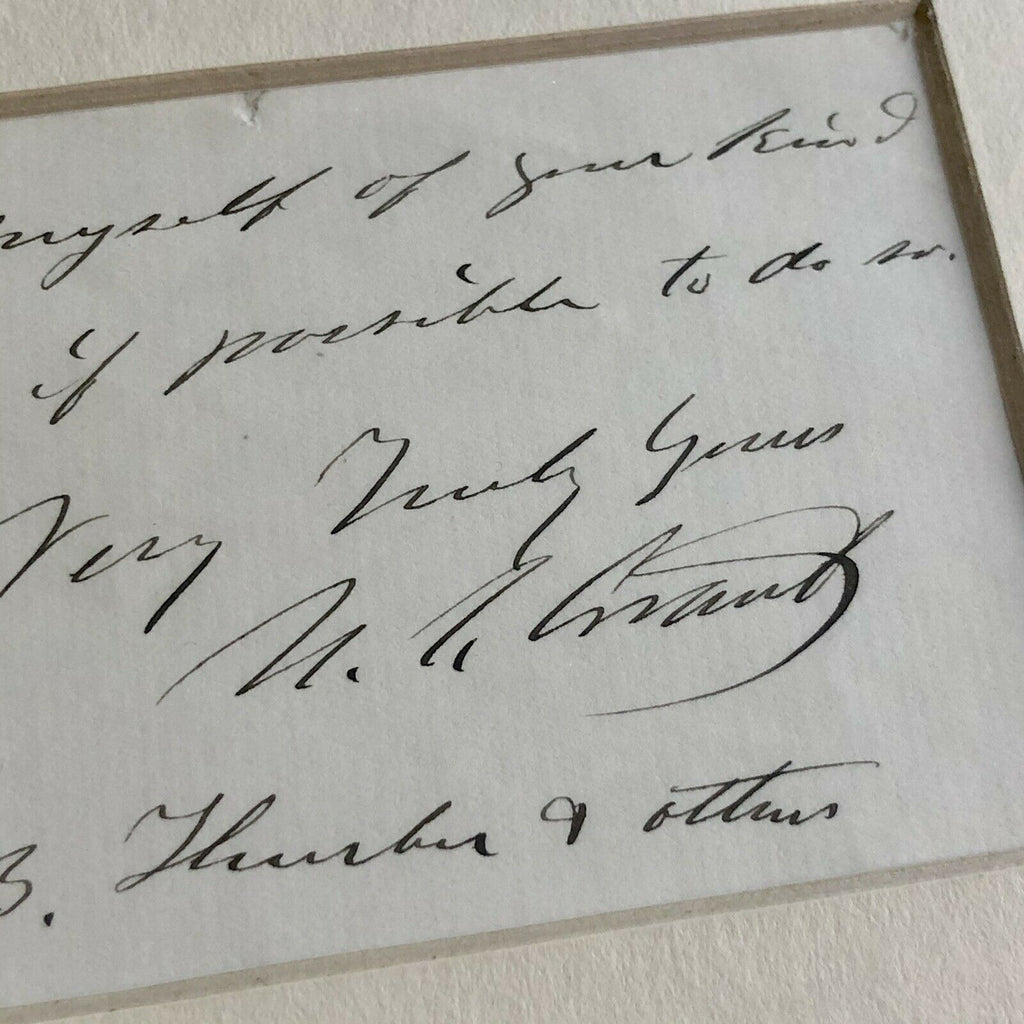 myself of your kind
if possible to do so.
Very Truly Yours
U. S. Grant
B. Thurber & others